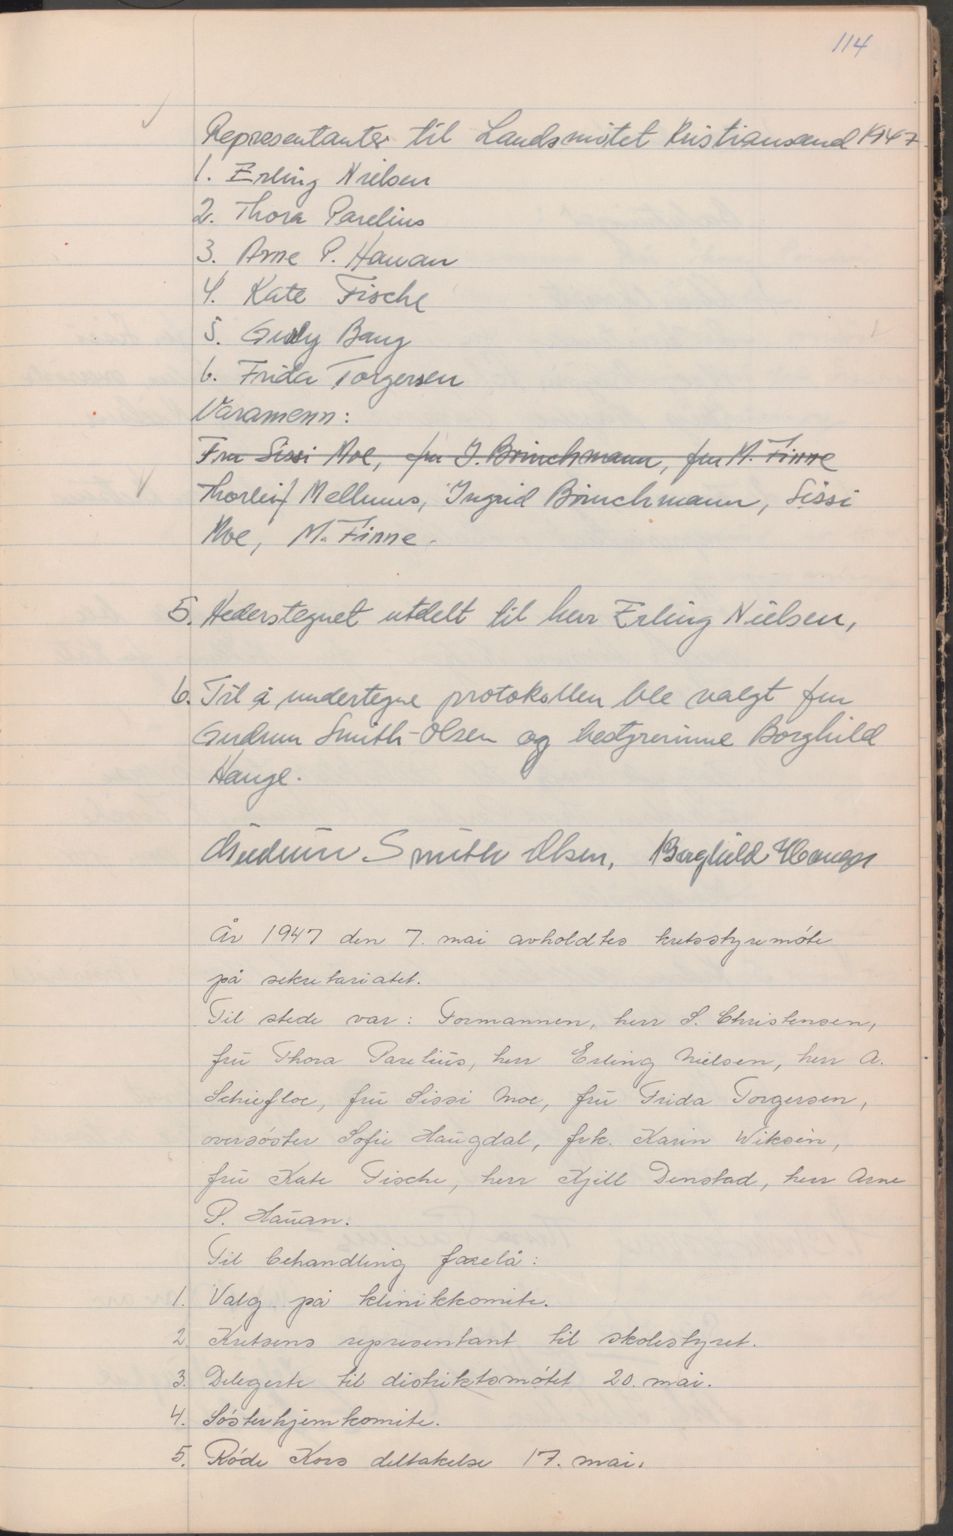 114
Representanter til Landsmøtet Kristiansand 1947.
1. Erling Nielsen
2. Thora Parelius
3. Arne P. Hauan
4. Kate Fische
5. Gudly Bang
6. Frida Torgersen
Varamenn:
Fru Sissi Moe, fru I. Brinchmann, fru M. Finne
Thorleif Mellnus, Ingrid Brinchmann, Sissi
Moe, M. Finne.
5. Hederstegnet utdelt til herr Erling Nielsen,
6. Til å undertegne protokollen ble valgt fru
Gudrun Smith-Olsen og bestyrerinne Borghild
Hauge.
Gudrun Smith Olsen, Borghild Hauge
År 1947 den 7. mai avholdtes kretsstyremöte
på sekretariatet.
Til stede var: Formannen, herr S. Christensen,
frü Thora Parelius, herr Erling Nielsen, herr A.
Schiefloe, frü Sissi Moe, frü Frida Torgersen,
oversöster Sofie Haugdal, frk. Karin Wiksèn,
frü Kate Fische, herr Kjell Denstad, herr Arne
P. Hauan.
Til behandling forelå:
1. Valg på klinikkomite.
2. Kretsens representant til skolestyret.
3. Delegerte til distriktsmötet 20. mai.
4. Sösterhjemkomite.
5. Röde Kors deltakelse 17. mai.